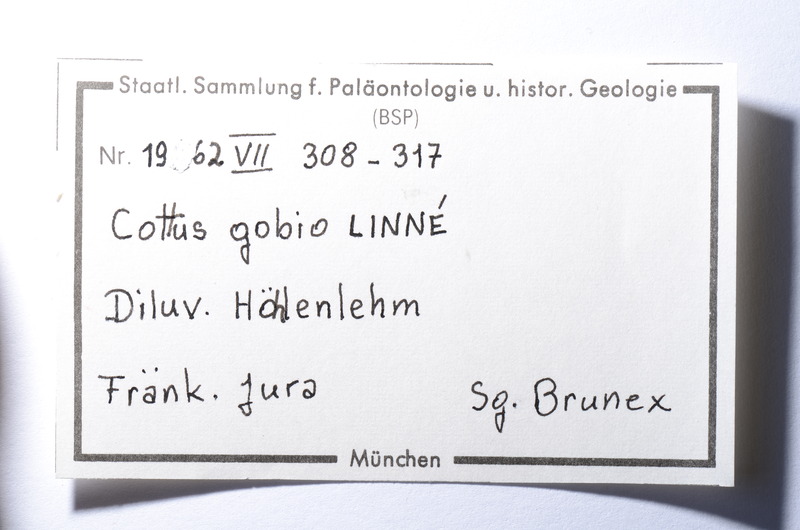 Staatl. Sammlung f. Paläontologie u. histor. Geologie
(BSP)
Nr. 1962 VII 308 - 317
Cottus gobio LINNÉ
Diluv. Höhlenlehm
Fränk. Jura Sg. Brunex
München